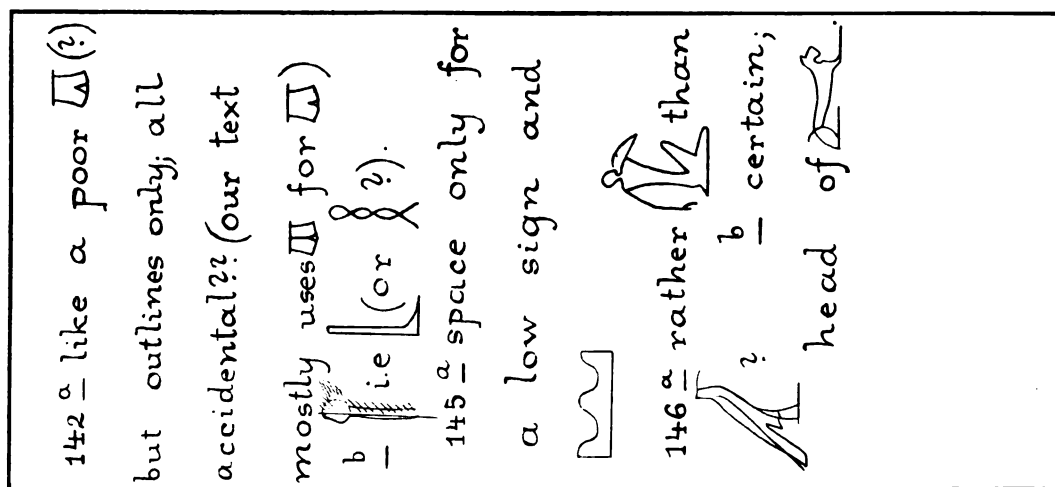 142 a like a poor (?)
but outlines only; all
accidental?? (our text
mostly uses for )
b i.e (or ?).
145 a space only for
a low sign and
146 a rather than
? b certain;
head of .